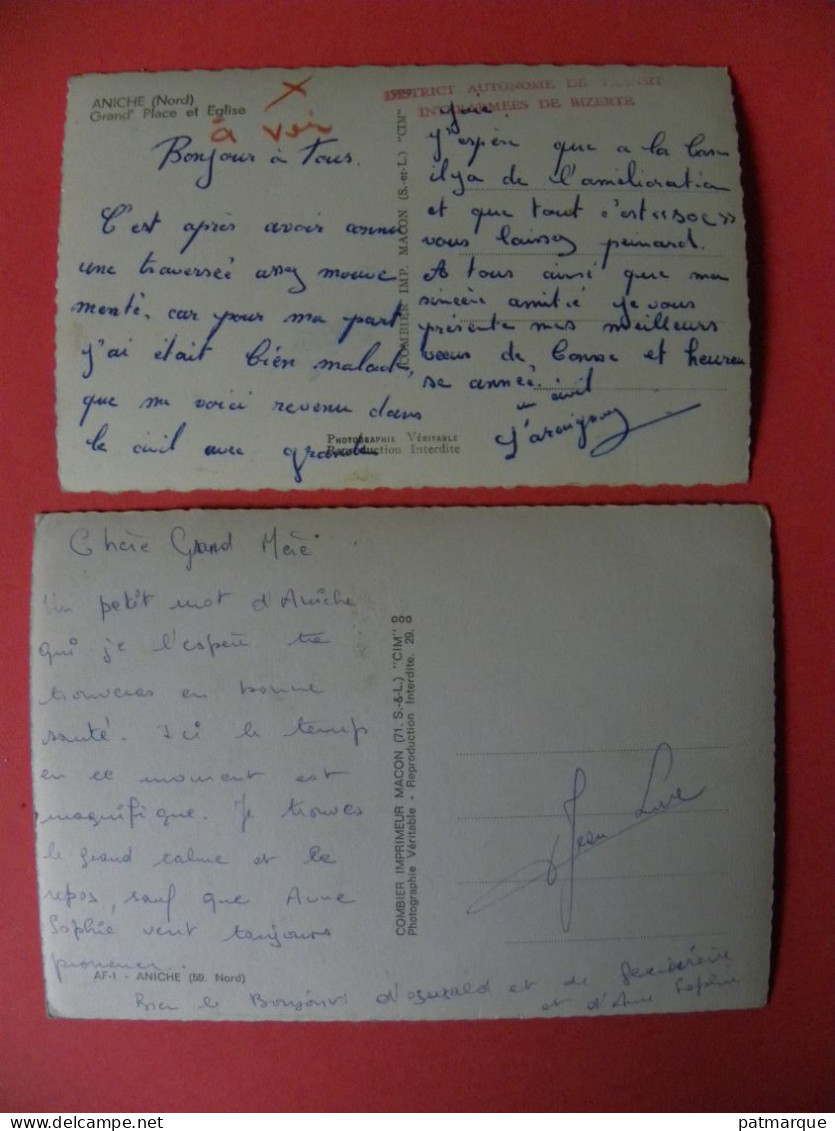 ANICHE (Nord)
Grand' Place et Eglise
X
à voir
Bonjour à Tous.
C'est après avoir connu
une traverseé assez mouve
menté, car pour ma part
j'ai était bien malade,
que me voici revenu dans
le civil avec grande
PHOTOGRAPHIE VÉRITABLE
Reproduction Interdite
COMBIER IMP. MACON (S.-et-L.) "CIM"
DISTRICT AUTONOME DE TRANSIT
INTERARMEES DE BIZERTE
joie.
J'espère que a la base
il y a de l'amélioration
et que tout c'est «soc»
vous laisse peinard.
A tous ainsi que ma
sincère amitié je vous
présente mes meilleurs
voeux de bonne et heureu
se année.
un civil
Chère Grand Mère
Un petit mot d'Aniche
qui je l'espère te
trouveras en bonne
santé. Ici le temps
en ce moment est
magnifique. Je trouves
le grand calme et le
repos, sauf que Anne
Sophie veut toujours
promener.
AF-1 - ANICHE (59. Nord)
Bien le Bonjour d'Oswald et de
et d'Anne Sophie
COMBIER IMPRIMEUR MACON (71. S.-&-L.) "CIM" 000
Photographie Véritable - Reproduction Interdite. 29.
Jean Luc
delcampe.net
patmarque